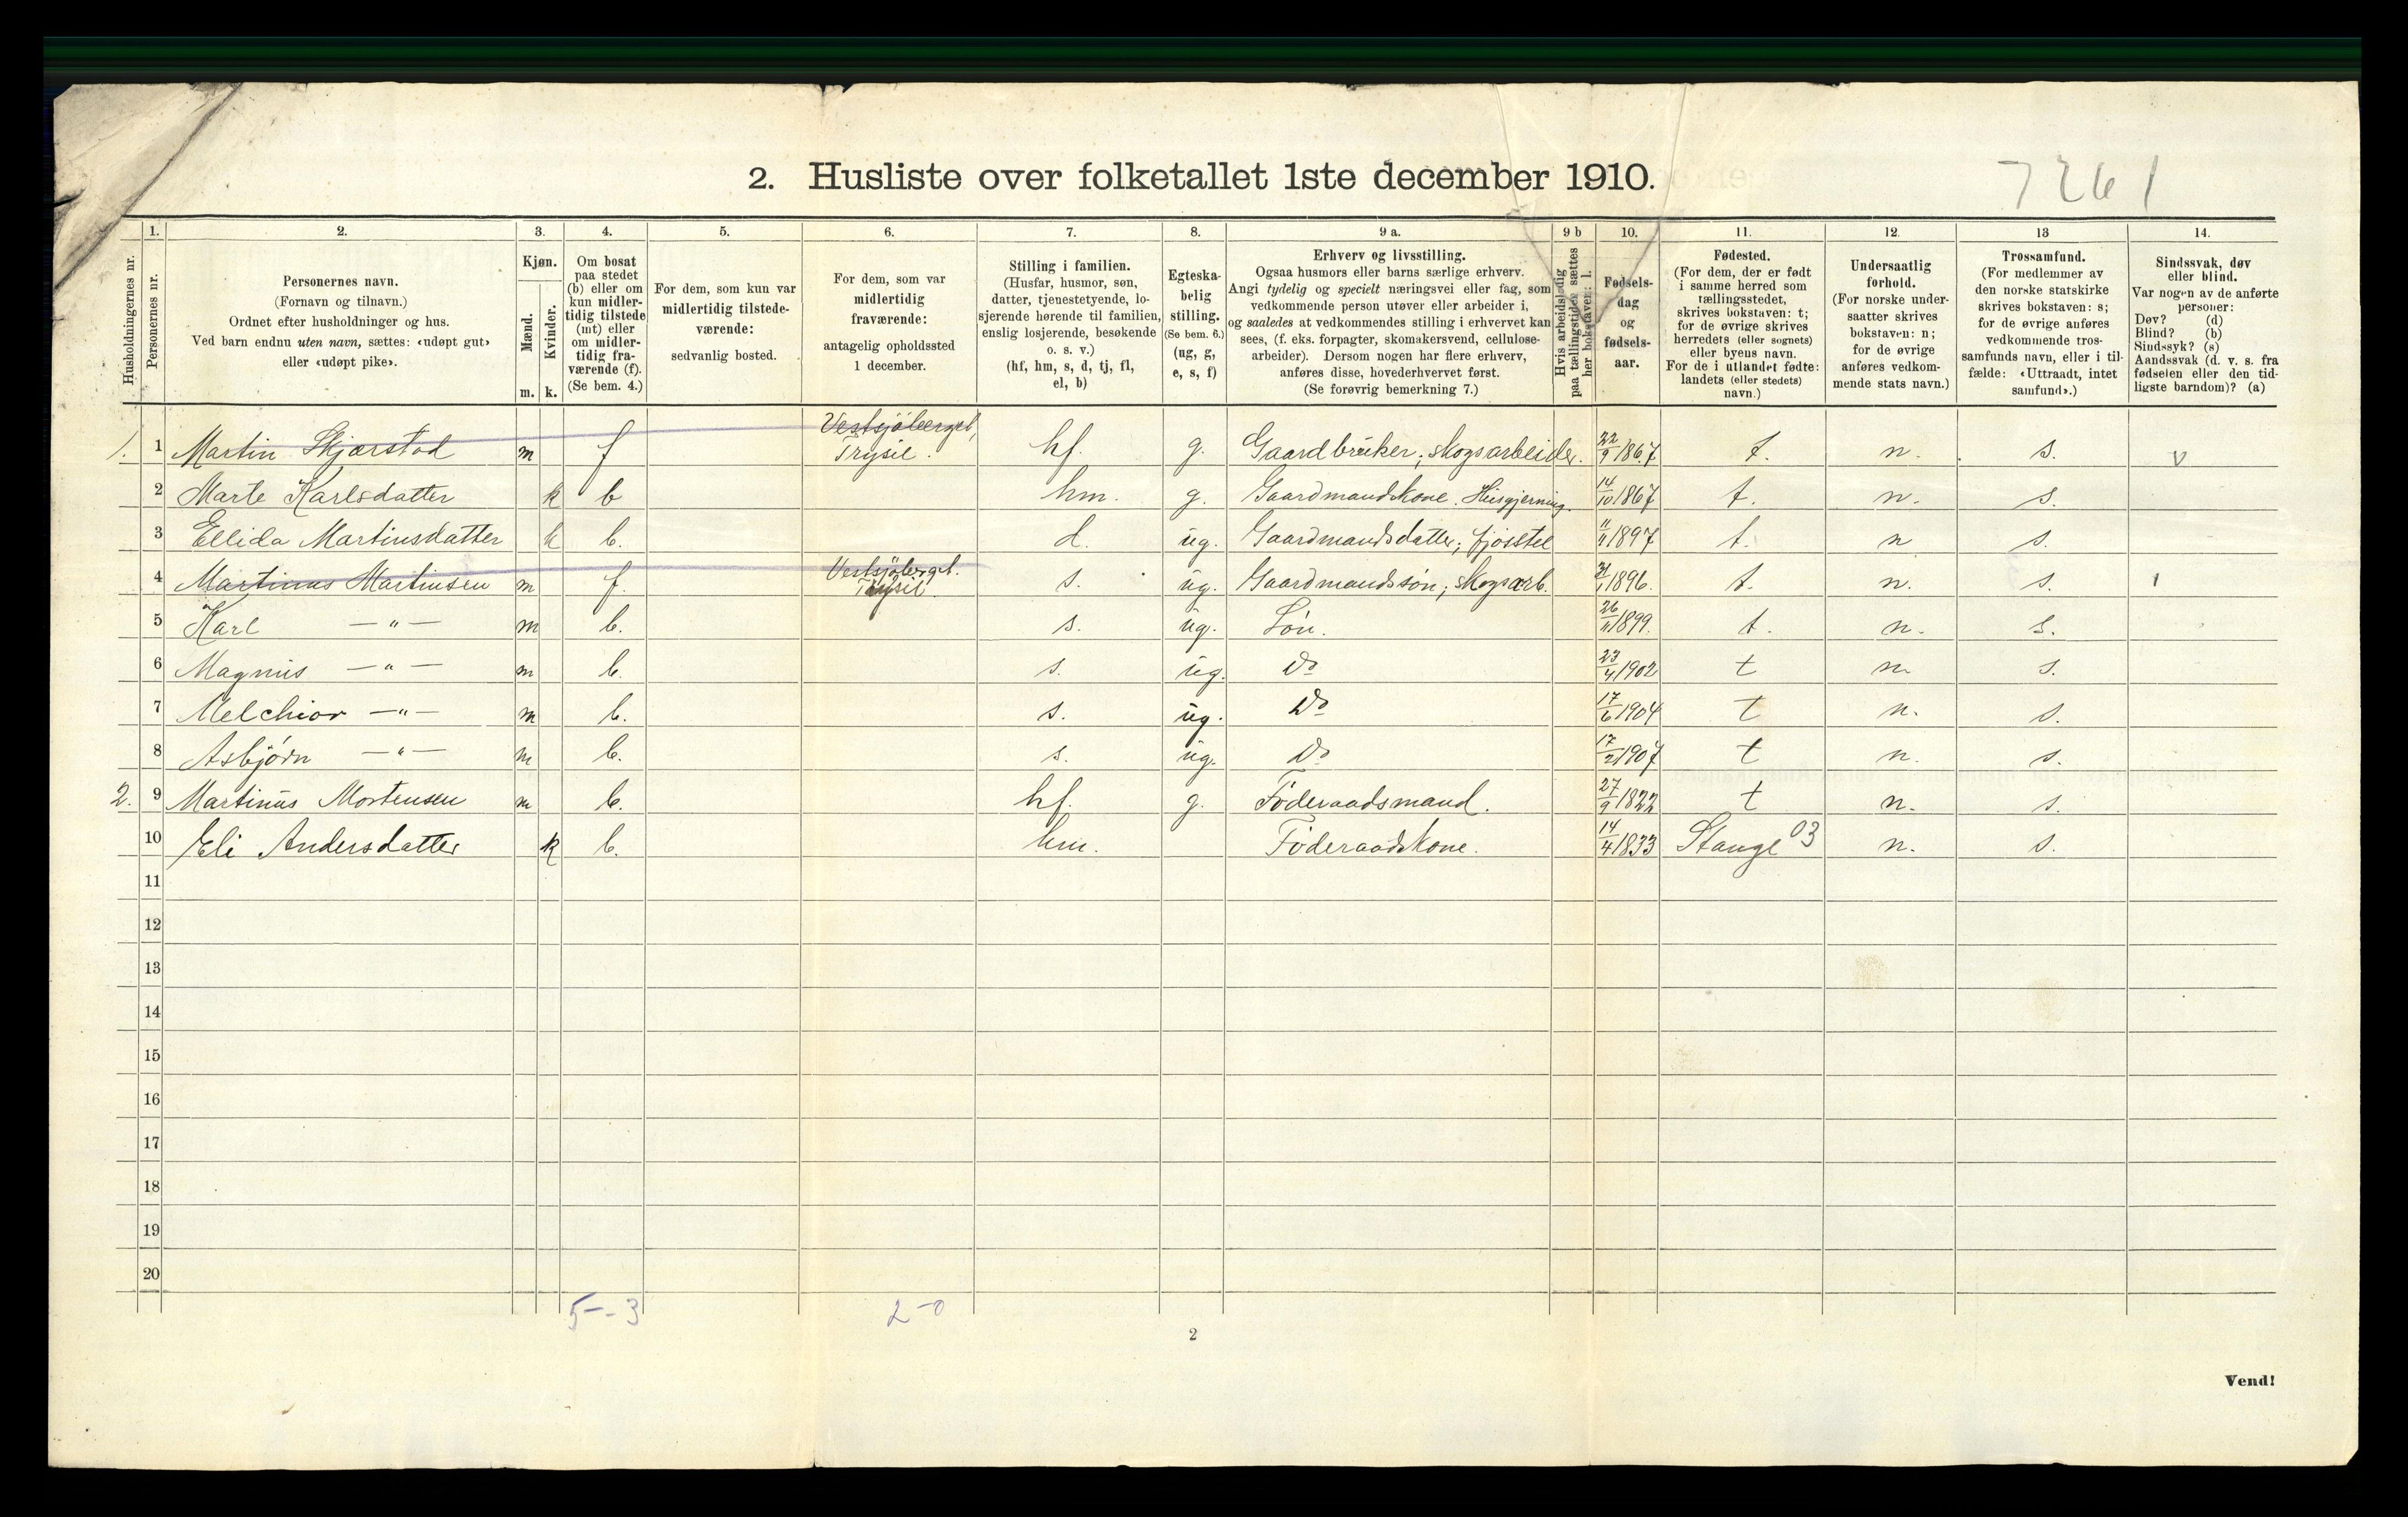 2. Husliste over folketallet 1ste december 1910.
7261
Husholdningernes nr.
1.
Personernes nr.
2.
Personernes navn.
(Fornavn og tilnavn.)
Ordnet efter husholdninger og hus.
Ved barn endnu uten navn, sættes: «udøpt gut»
eller «udøpt pike».
3.
Kjøn.
Mænd.
Kvinder.
m. k.
4.
Om bosat
paa stedet
(b) eller om
kun midler-
tidig tilstede
(mt) eller
om midler-
tidig fra-
værende (f).
(Se bem. 4.)
5.
For dem, som kun var
midlertidig tilstede-
værende:
sedvanlig bosted.
6.
For dem, som var
midlertidig
fraværende:
antagelig opholdssted
1 december.
7.
Stilling i familien.
(Husfar, husmor, søn,
datter, tjenestetyende, lo-
sjerende hørende til familien,
enslig losjerende, besøkende
o. s. v.)
(hf, hm, s, d, tj, fl,
el, b)
8.
Egteska-
belig
stilling.
(Se bem. 6.)
(ug, g,
e, s, f)
9 a.
Erhverv og livsstilling.
Ogsaa husmors eller barns særlige erhverv.
Angi tydelig og specielt næringsvei eller fag, som
vedkommende person utøver eller arbeider i,
og saaledes at vedkommendes stilling i erhvervet kan
sees, (f. eks. forpagter, skomakersvend, cellulose-
arbeider). Dersom nogen har flere erhverv,
anføres disse, hovederhvervet først.
(Se forøvrig bemerkning 7.)
9 b
Hvis arbeidsledig
paa tællingstiden sættes
her bokstaven: l.
10.
Fødsels-
dag
og
fødsels-
aar.
11.
Fødested.
(For dem, der er født
i samme herred som
tællingsstedet,
skrives bokstaven: t;
for de øvrige skrives
herredets (eller sognets)
eller byens navn.
For de i utlandet fødte:
landets (eller stedets)
navn.)
12.
Undersaatlig
forhold.
(For norske under-
saatter skrives
bokstaven: n;
for de øvrige
anføres vedkom-
mende stats navn.)
13
Trossamfund.
(For medlemmer av
den norske statskirke
skrives bokstaven: s;
for de øvrige anføres
vedkommende tros-
samfunds navn, eller i til-
fælde: «Uttraadt, intet
samfund».)
14.
Sindssvak, døv
eller blind.
Var nogen av de anførte
personer:
Døv? (d)
Blind? (b)
Sindssyk? (s)
Aandssvak (d. v. s. fra
fødselen eller den tid-
ligste barndom)? (a)
1. 1 Martin Skjærstad m f Vestsjöberget, Trysil. hf. g. Gaardbruker; skogsarbeider. 22/9 1867 t. n. s. v
2 Marte Karlsdatter k b hm. g. Gaardmandskone. Husgjerning. 14/10 1867 t. n. s.
3 Ellida Martinsdatter k b. d. ug. Gaardmandsdatter; fjosstel 11/11 1897 t. n s.
4 Martinus Martinsen m f. Vestsjöberget. Trysil s. ug. Gaardmandssøn; skogsarb. 31/1 1896. t. n. s. 1
5 Karl —"— m b. s. ug. Søn. 26/11 1899. t. n. s.
6 Magnus —"— m b. s. ug. Do 23/4 1902 t n. s.
7 Melchior —"— m b. s. ug. Do 17/6 1904 t n. s.
8 Asbjørn —"— m b. s. ug. Do 17/2 1907 t n. s.
2. 9 Martinus Mortensen m b. hf. g. Föderaadsmand. 27/9 1822 t n. s.
10 Eli Andersdatter k b. hm. Föderaadskone. 14/4 1833 Stange 03 n. s.
11
12
13
14
15
16
17
18
19
20
5--3 2-0
2
Vend!